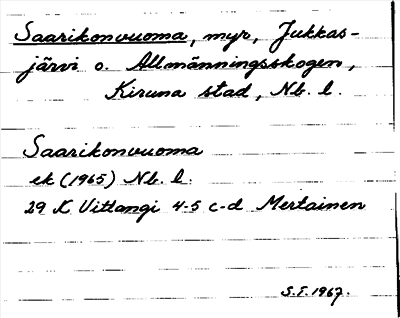 Saarikonvuoma, myr, Jukkas-
järvi o. Allmänningsskogen,
Kiruna stad, Nb. l.
Saarikonvuoma
ek (1965) Nb. l.
29 K Vittangi 4-5 c-d Mertainen
S.F. 1967.